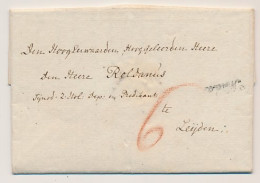 Den HoogEerwaarden HoogGeleerden Heere
den Heere Roldanus
Synod: Z: Hol. Dep: en Predikant
te
Leijden:
6